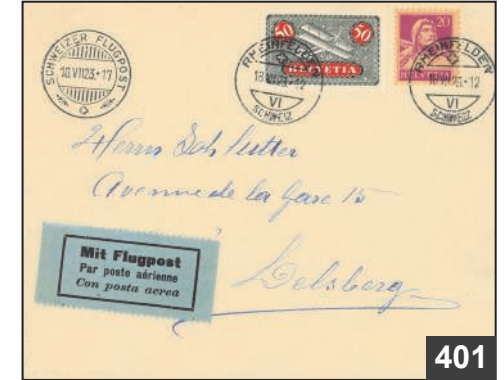 SCHWEIZER FLUGPOST
18.VII.23.-17
50 50
HELVETIA
20
HELVETIA
RHEINFELDEN
18.VII.23.-12
VI
SCHWEIZ
RHEINFELDEN
18.VII.23.-12
VI
SCHWEIZ
Herrn
Avenue de la Gare 15
Delsberg
Mit Flugpost
Par poste aérienne
Con posta aerea
401